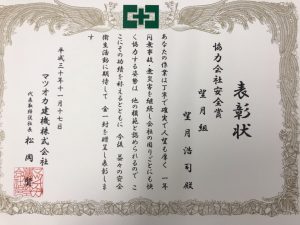 表彰状
協力会社安全賞
望月組
望月浩司殿
あなたの作業は丁寧で確実で人望も厚く 一年
間無事故・無災害を継続し会社の困りごとにも快
く協力する姿勢は 他の模範と認められるので こ
こにその功績を称えるとともに 今後 益々の安全
衛生活動に期待して 金一封を贈呈し表彰しま
す
平成三十年十一月十七日
マツオカ建機株式会社
代表取締役社長 松岡 賢